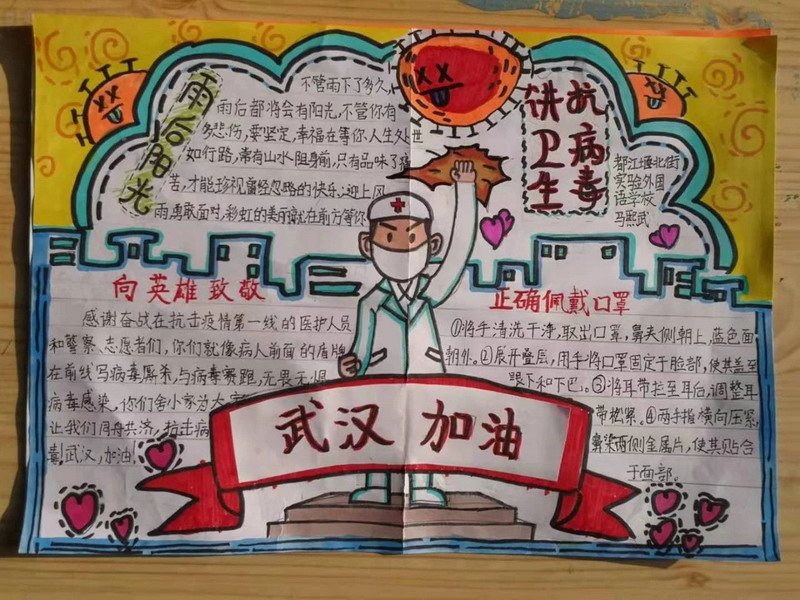 雨后阳光
不管雨下了多久,
雨后都将会有阳光,不管你有
多悲伤,要坚定,幸福在等你.人生处世
如行路,常有山水阻身前,只有品味了痛
苦,才能珍视曾经忽略的快乐,迎上风
雨,勇敢面对,彩虹的美丽就在前方等你
抗病毒
讲卫生
都江堰北街
实验外国
语学校
马熙武
向英雄致敬
感谢奋战在抗击疫情第一线的医护人员
和警察、志愿者们,你们就像病人前面的盾牌
在前线写病毒厮杀,与病毒赛跑,无畏无惧
病毒感染,你们舍小家为大家
让我们同舟共济,抗击病
毒!武汉,加油!
正确佩戴口罩
①将手清洗干净,取出口罩,鼻夹侧朝上,蓝色面
朝外。②展开叠层,用手将口罩固定于脸部,使其盖至
眼下和下巴。③将耳带拉至耳后,调整耳
带松紧。④两手指横向压紧
鼻梁两侧金属片,使其贴合
于面部。
武汉 加油